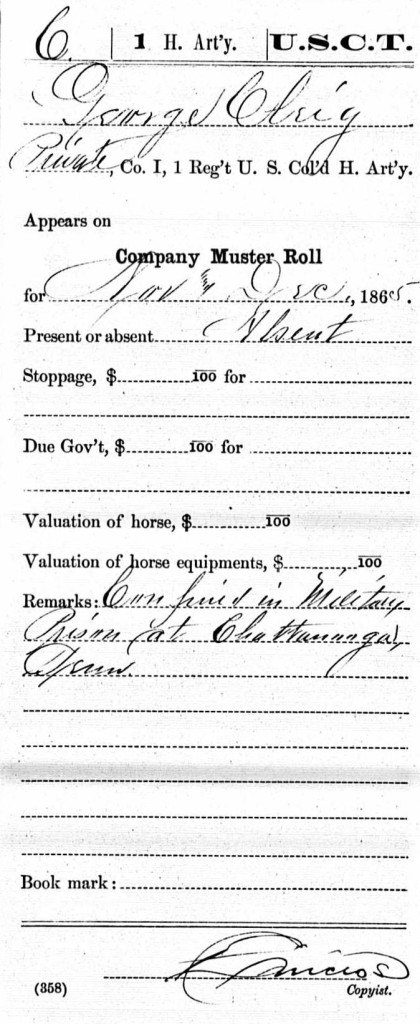 C. | 1 H. Art'y. | U.S.C.T.
George Cleig
Private, Co. I, 1 Reg't U. S. Col'd H. Art'y.
Appears on
Company Muster Roll
for Nov & Dec, 1865.
Present or absent Absent
Stoppage, $ 100 for
Due Gov't, $ 100 for
Valuation of horse, $ 100
Valuation of horse equipments, $ 100
Remarks: Confined in Military
Prison at Chattanooga,
Tenn.
Book mark:
(358) Copyist.